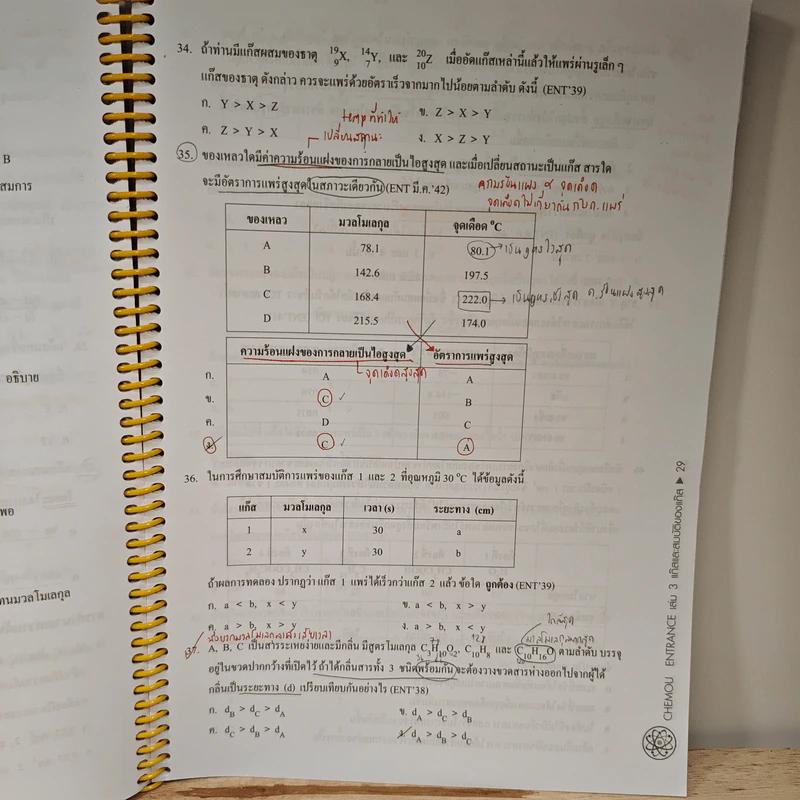 B
สมการ
อธิบาย
พอ
ทนมวลโมเลกุล
34. ถ้าท่านมีแก๊สผสมของธาตุ ¹⁹₉X, ¹⁴₇Y, และ ²⁰₁₀Z เมื่ออัดแก๊สเหล่านี้แล้วให้แพร่ผ่านรูเล็ก ๆ
แก๊สของธาตุ ดังกล่าว ควรจะแพร่ด้วยอัตราเร็วจากมากไปน้อยตามลำดับ ดังนี้ (ENT'39)
ก. Y > X > Z ข. Z > X > Y
temp ที่ทำให้
ค. Z > Y > X ง. X > Z > Y
เปลี่ยนสถานะ
35. ของเหลวใดมีค่าความร้อนแฝงของการกลายเป็นไอสูงสุด และเมื่อเปลี่ยนสถานะเป็นแก๊ส สารใด
จะมีอัตราการแพร่สูงสุดในสภาวะเดียวกัน (ENT มี.ค.'42)
จุดเดือด
ของเหลว มวลโมเลกุล จุดเดือด °C
A 78.1 80.1
B 142.6 197.5
C 168.4 222.0
D 215.5 174.0
ความร้อนแฝงของการกลายเป็นไอสูงสุด อัตราการแพร่สูงสุด
จุดเดือดสูงสุด
ก. A A
ข. C ✓ B
ค. D C
ง. C ✓ A
36. ในการศึกษาสมบัติการแพร่ของแก๊ส 1 และ 2 ที่อุณหภูมิ 30 °C ได้ข้อมูลดังนี้
แก๊ส มวลโมเลกุล เวลา (s) ระยะทาง (cm)
1 x 30 a
2 y 30 b
ถ้าผลการทดลอง ปรากฏว่า แก๊ส 1 แพร่ได้เร็วกว่าแก๊ส 2 แล้ว ข้อใด ถูกต้อง (ENT'39)
ก. a < b, x < y ข. a < b, x > y
ค. a > b, x > y ง. a > b, x < y
37. A, B, C เป็นสารระเหยง่ายและมีกลิ่น มีสูตรโมเลกุล C₃H₁₀O₂, C₁₀H₈ และ C₁₀H₁₆O ตามลำดับ บรรจุ
อยู่ในขวดปากกว้างที่เปิดไว้ ถ้าได้กลิ่นสารทั้ง 3 ชนิดพร้อมกัน จะต้องวางขวดสารห่างออกไปจากผู้ได้
กลิ่นเป็นระยะทาง (d) เปรียบเทียบกันอย่างไร (ENT'38)
ก. d_B > d_C > d_A ข. d_A > d_C > d_B
ค. d_C > d_B > d_A ง. d_A > d_B > d_C
CHEMOU ENTRANCE เล่ม 3 แก๊สและสมบัติของแก๊ส ▶ 29